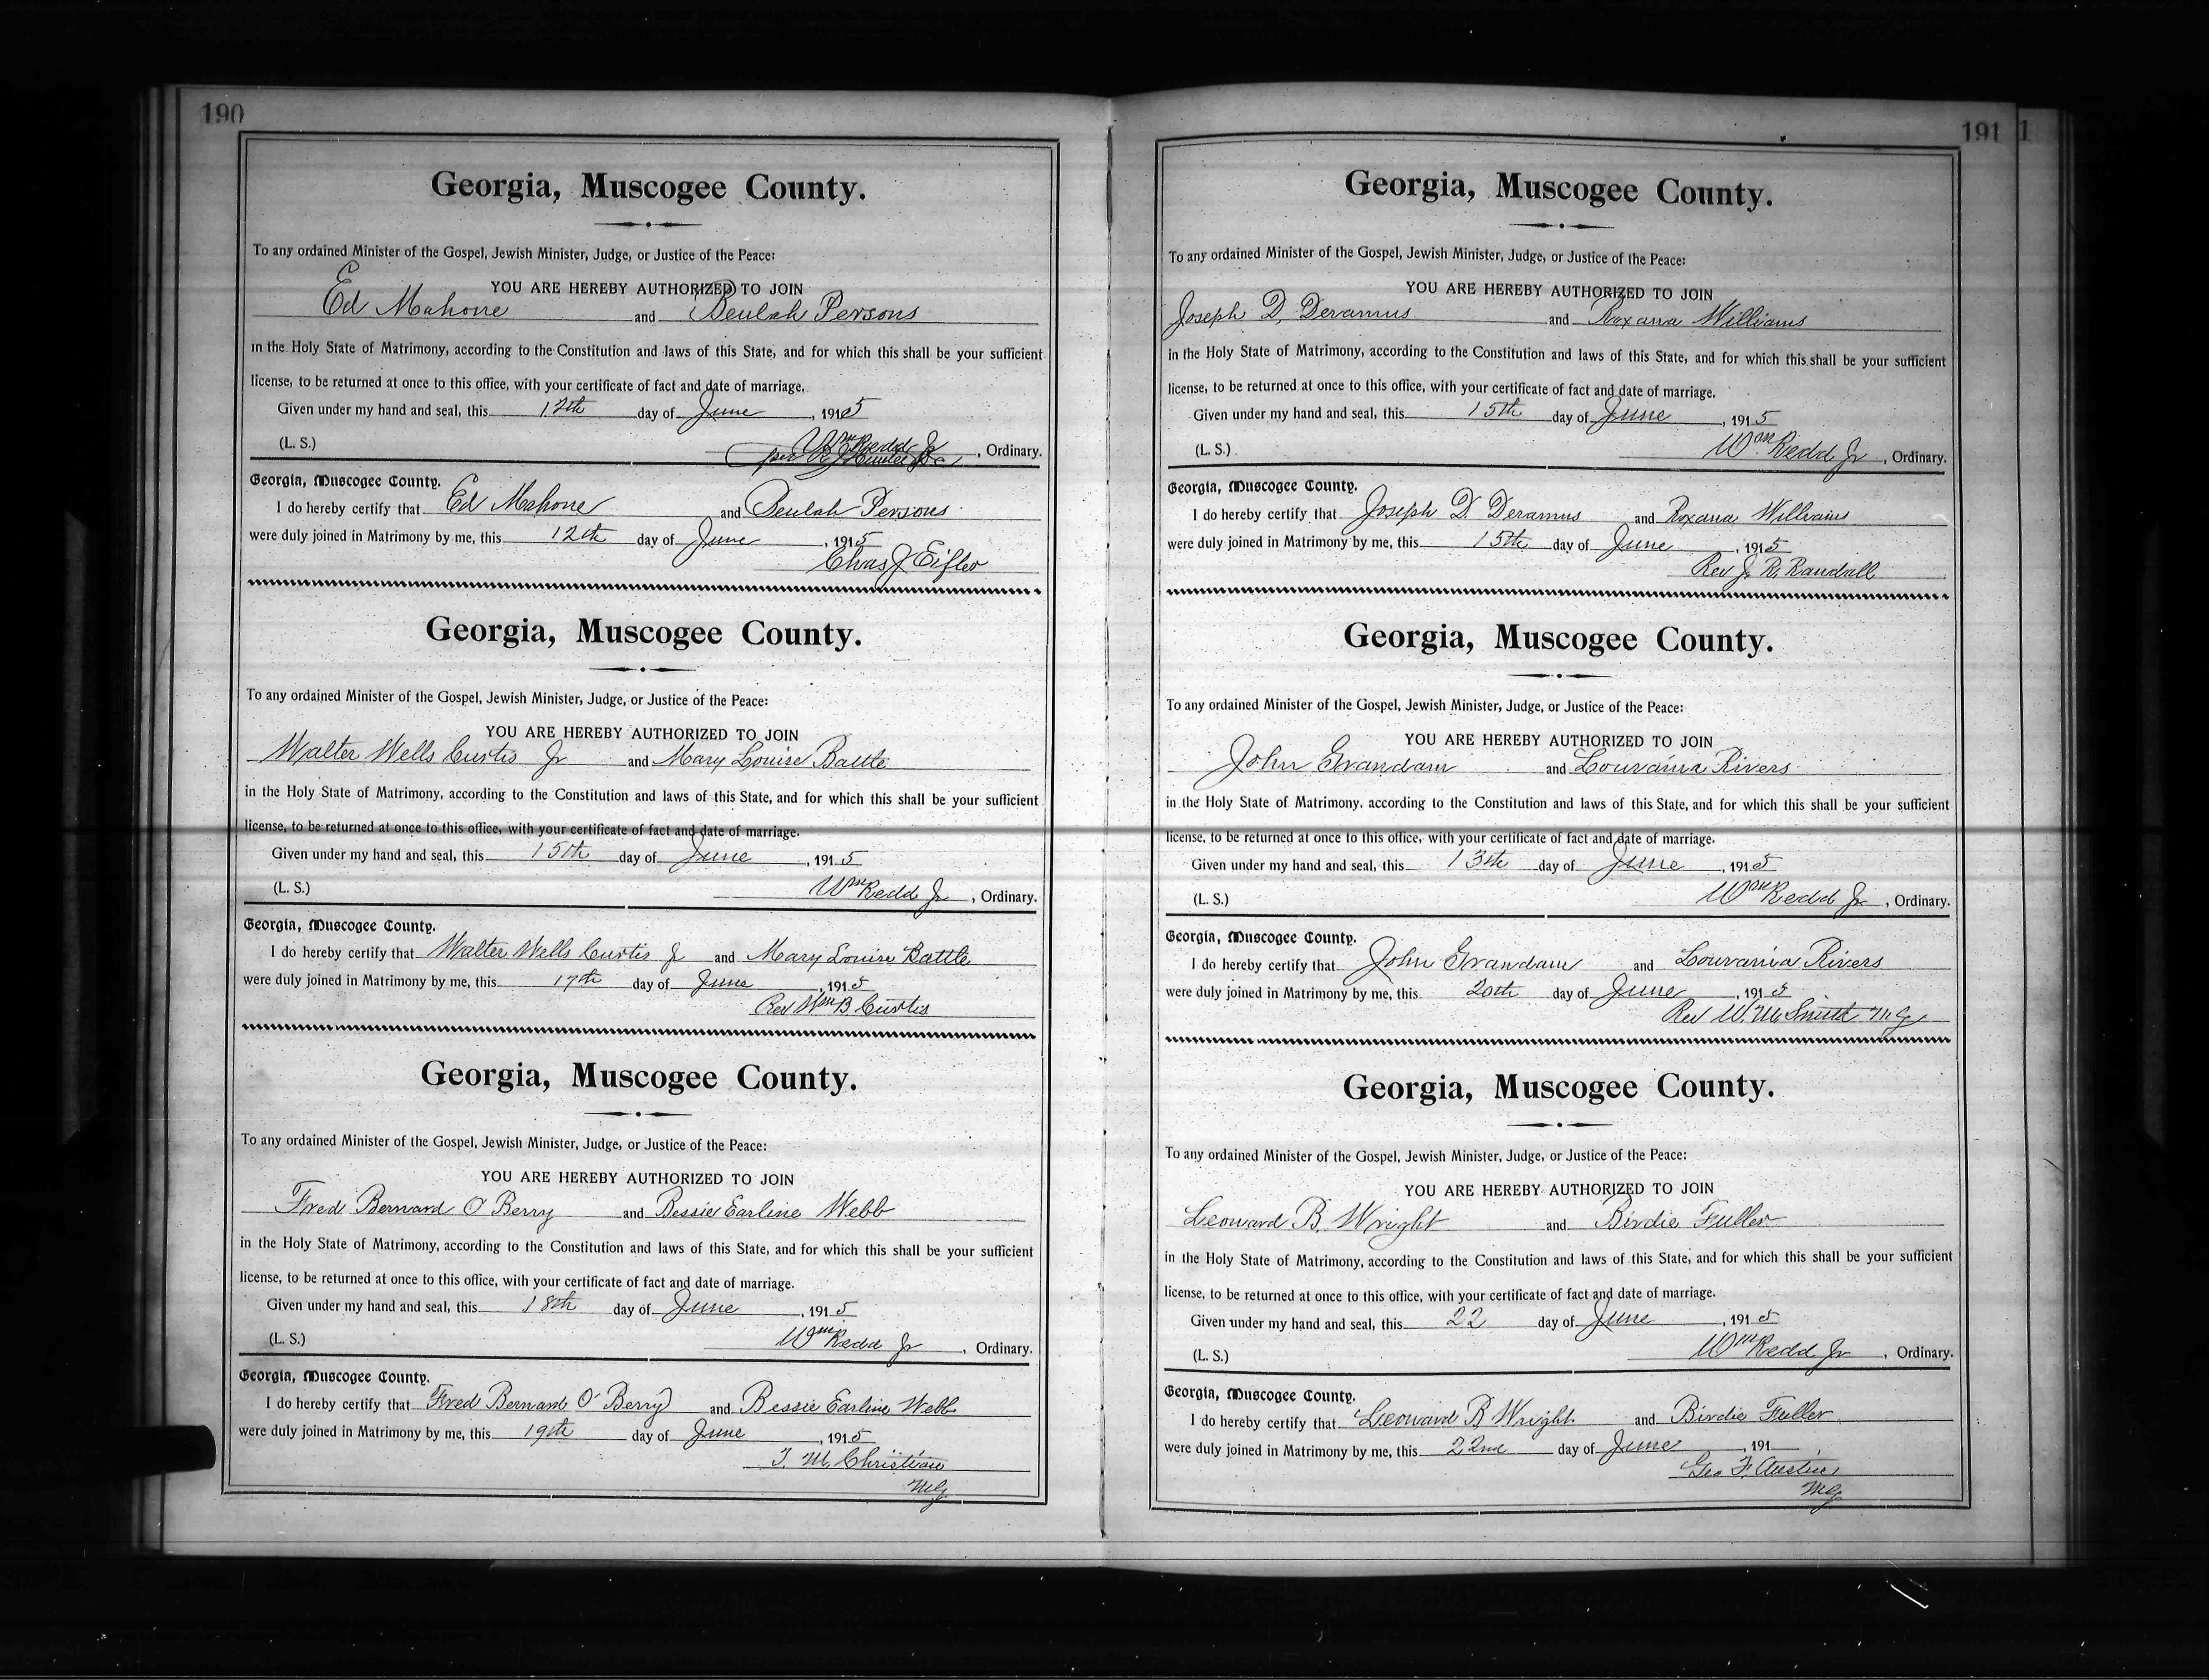 190
Georgia, Muscogee County.
To any ordained Minister of the Gospel, Jewish Minister, Judge, or Justice of the Peace:
YOU ARE HEREBY AUTHORIZED TO JOIN
Ed Mahone and Beulah Persons
in the Holy State of Matrimony, according to the Constitution and laws of this State, and for which this shall be your sufficient
license, to be returned at once to this office, with your certificate of fact and date of marriage.
Given under my hand and seal, this 12th day of June, 1915
(L. S.) Wm Redd Jr, Ordinary.
Georgia, Muscogee County.
I do hereby certify that Ed Mahone and Beulah Persons
were duly joined in Matrimony by me, this 12th day of June, 1915
Chas J Eifler
Georgia, Muscogee County.
To any ordained Minister of the Gospel, Jewish Minister, Judge, or Justice of the Peace:
YOU ARE HEREBY AUTHORIZED TO JOIN
Walter Wells Curtis Jr and Mary Louise Battle
in the Holy State of Matrimony, according to the Constitution and laws of this State, and for which this shall be your sufficient
license, to be returned at once to this office, with your certificate of fact and date of marriage.
Given under my hand and seal, this 15th day of June, 1915
(L. S.) Wm Redd Jr, Ordinary.
Georgia, Muscogee County.
I do hereby certify that Walter Wells Curtis Jr and Mary Louise Battle
were duly joined in Matrimony by me, this 17th day of June, 1915
Rev Wm B. Curtis
Georgia, Muscogee County.
To any ordained Minister of the Gospel, Jewish Minister, Judge, or Justice of the Peace:
YOU ARE HEREBY AUTHORIZED TO JOIN
Fred Bernard O'Berry and Bessie Earline Webb
in the Holy State of Matrimony, according to the Constitution and laws of this State, and for which this shall be your sufficient
license, to be returned at once to this office, with your certificate of fact and date of marriage.
Given under my hand and seal, this 18th day of June, 1915
(L. S.) Wm Redd Jr, Ordinary.
Georgia, Muscogee County.
I do hereby certify that Fred Bernard O'Berry and Bessie Earline Webb
were duly joined in Matrimony by me, this 19th day of June, 1915
T. M. Christian
MG
191 1
Georgia, Muscogee County.
To any ordained Minister of the Gospel, Jewish Minister, Judge, or Justice of the Peace:
YOU ARE HEREBY AUTHORIZED TO JOIN
Joseph D. Deramus and Roxana Williams
in the Holy State of Matrimony, according to the Constitution and laws of this State, and for which this shall be your sufficient
license, to be returned at once to this office, with your certificate of fact and date of marriage.
Given under my hand and seal, this 15th day of June, 1915
(L. S.) Wm Redd Jr, Ordinary.
Georgia, Muscogee County.
I do hereby certify that Joseph D. Deramus and Roxana Williams
were duly joined in Matrimony by me, this 15th day of June, 1915
Rev J. R. Randall
Georgia, Muscogee County.
To any ordained Minister of the Gospel, Jewish Minister, Judge, or Justice of the Peace:
YOU ARE HEREBY AUTHORIZED TO JOIN
John Grandam and Louvania Rivers
in the Holy State of Matrimony, according to the Constitution and laws of this State, and for which this shall be your sufficient
license, to be returned at once to this office, with your certificate of fact and date of marriage.
Given under my hand and seal, this 13th day of June, 1915
(L. S.) Wm Redd Jr, Ordinary.
Georgia, Muscogee County.
I do hereby certify that John Grandam and Louvania Rivers
were duly joined in Matrimony by me, this 20th day of June, 1915
Rev W. M. Smith MG
Georgia, Muscogee County.
To any ordained Minister of the Gospel, Jewish Minister, Judge, or Justice of the Peace:
YOU ARE HEREBY AUTHORIZED TO JOIN
Leonard B. Wright and Birdie Fuller
in the Holy State of Matrimony, according to the Constitution and laws of this State, and for which this shall be your sufficient
license, to be returned at once to this office, with your certificate of fact and date of marriage.
Given under my hand and seal, this 22 day of June, 1915
(L. S.) Wm Redd Jr, Ordinary.
Georgia, Muscogee County.
I do hereby certify that Leonard B Wright and Birdie Fuller
were duly joined in Matrimony by me, this 22nd day of June, 191
Geo F. Austin
MG